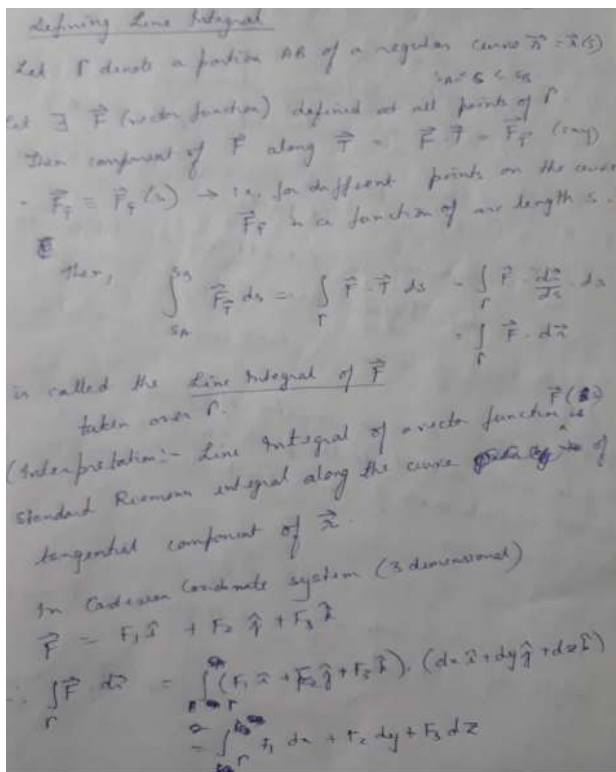 Defining Line Integral
Let Γ denote a portion AB of a regular curve r⃗ = r⃗(s)
s_A ≤ s ≤ s_B
Let ∃ F⃗ (vector function) defined at all points of Γ.
Then component of F⃗ along T⃗ = F⃗ . T⃗ = F⃗_T⃗ (say)
F⃗_T⃗ ≡ F⃗_T⃗ (s) → i.e. for different points on the curve
F⃗_T⃗ is a function of arc length s.
Then, ∫_{s_A}^{s_B} F⃗_T⃗ ds = ∫_Γ F⃗ . T⃗ ds = ∫_Γ F⃗ . dr⃗/ds . ds
= ∫_Γ F⃗ . dr⃗
is called the Line Integral of F⃗
taken over Γ.
(Interpretation:- Line Integral of a vector function is
standard Riemann integral along the curve of
tangential component of r⃗.
In Cartesian Coordinate system (3 dimensional)
F⃗ = F₁ î + F₂ ĵ + F₃ k̂
∴ ∫_Γ F⃗ . dr⃗ = ∫_Γ (F₁ î + F₂ ĵ + F₃ k̂) . (dx î + dy ĵ + dz k̂)
= ∫_Γ F₁ dx + F₂ dy + F₃ dz